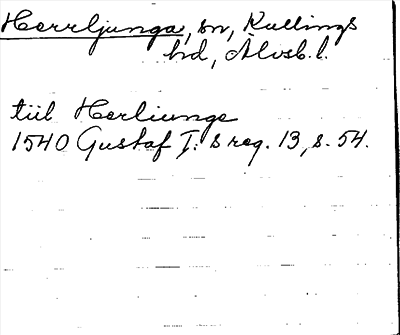 Herrljunga, sn, Kullings
hd, Älvsb. l.
till Herliunge
1540 Gustaf I:s reg. 13, s. 54.